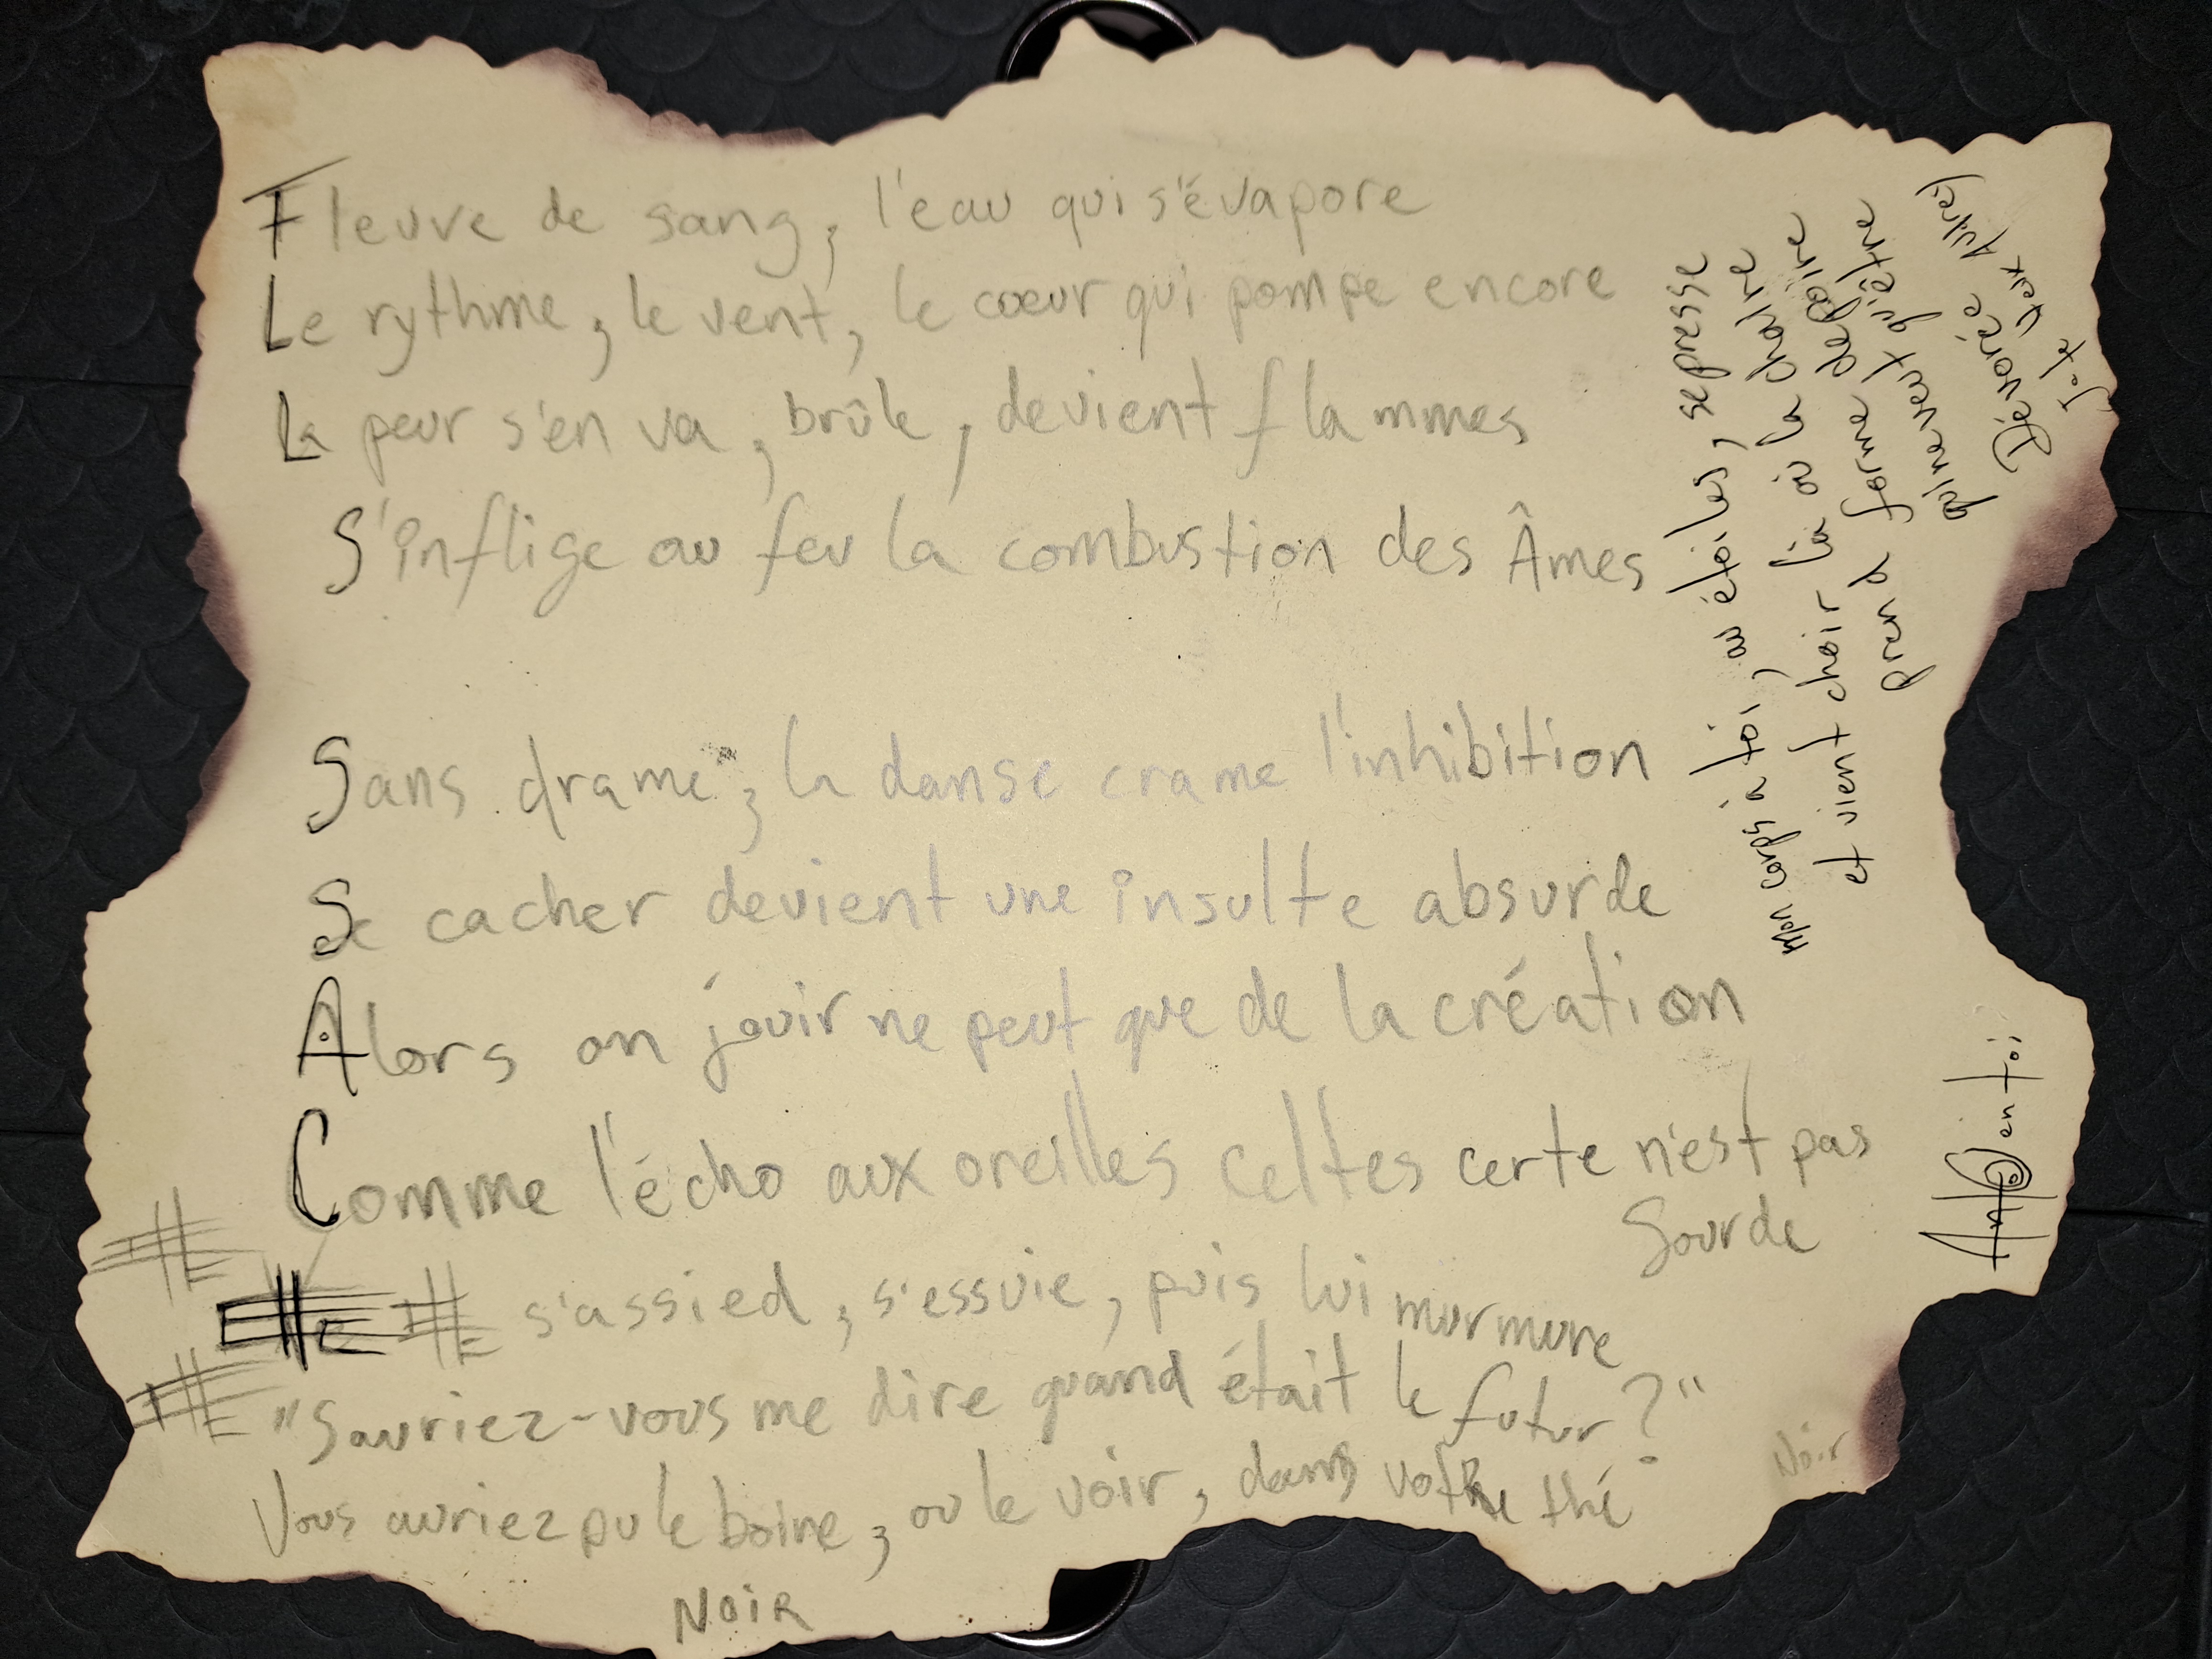 Fleuve de sang, l'eau qui s'évapore
Le rythme, le vent, le cœur qui pompe encore
La peur s'en va, brûle, devient flammes
S'inflige au feu la combustion des Âmes
Sans drame, la danse crame l'inhibition
Se cacher devient une insulte absurde
Alors on jouir ne peut que de la création
Comme l'écho aux oreilles celtes certe n'est pas
Sourde
s'assied, s'essuie, puis lui murmure
"Sauriez-vous me dire quand était le futur?"
Vous auriez pu le boire, ou le voir, dans votre thé
NOIR
Noir
Mon corps à toi, au étoiles, se presse
et vient choir là où la chaire
prend forme
qui ne veut qu'être
Dévorée
Je te veux
en toi